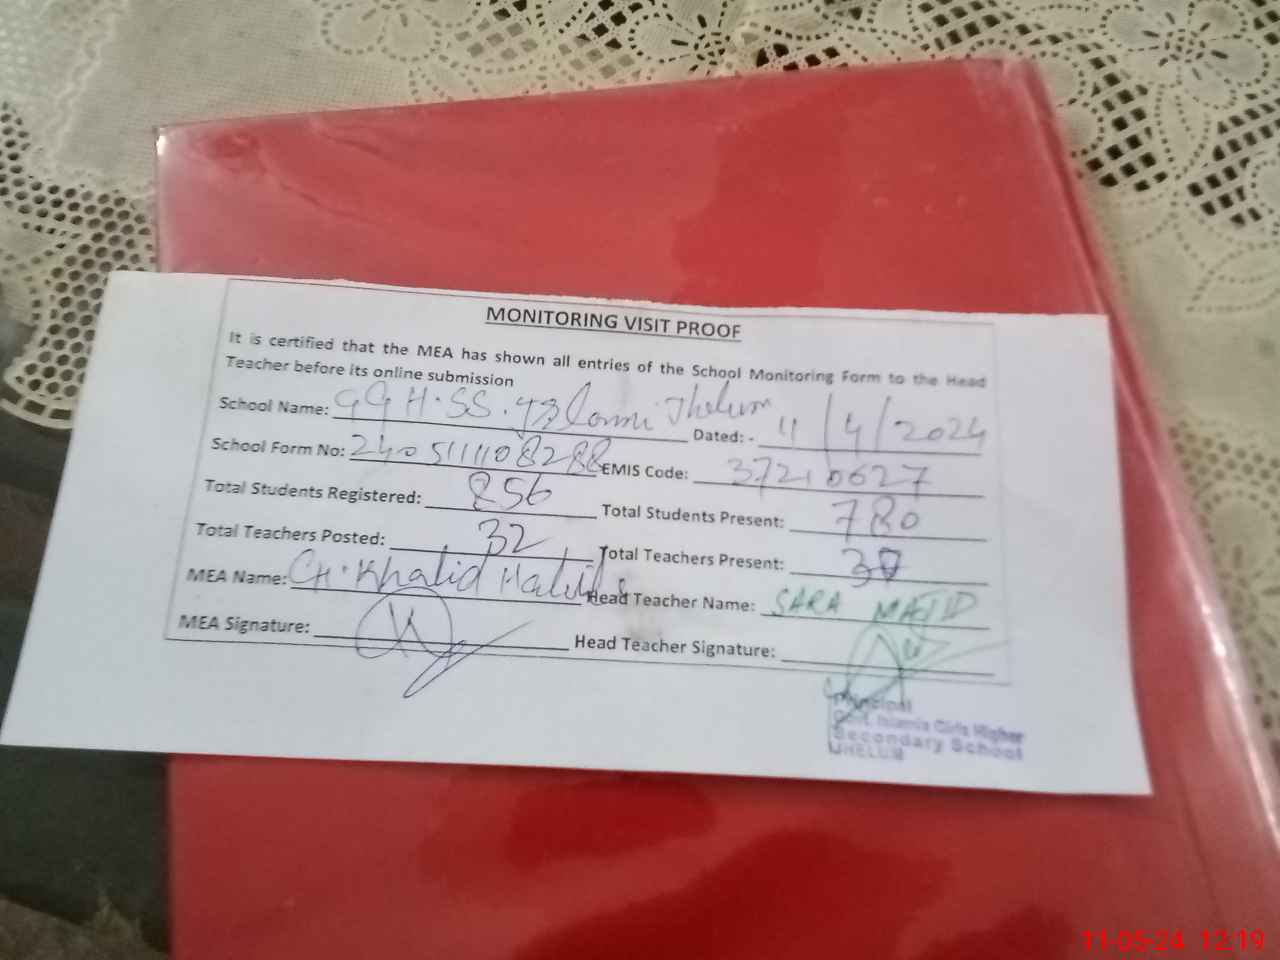 MONITORING VISIT PROOF
It is certified that the MEA has shown all entries of the School Monitoring Form to the Head
Teacher before its online submission
School Name: GGH.SS. Jhelum Dated: - 11/4/2024
School Form No: 2405111108288 EMIS Code: 37210627
Total Students Registered: 856 Total Students Present: 780
Total Teachers Posted: 32 Total Teachers Present:
MEA Name: CH. Khalid Head Teacher Name: SARA MAJID
MEA Signature: Head Teacher Signature:
Principal
Govt. Islamia Girls Higher
Secondary School
JHELUM
11-05-24 12:19